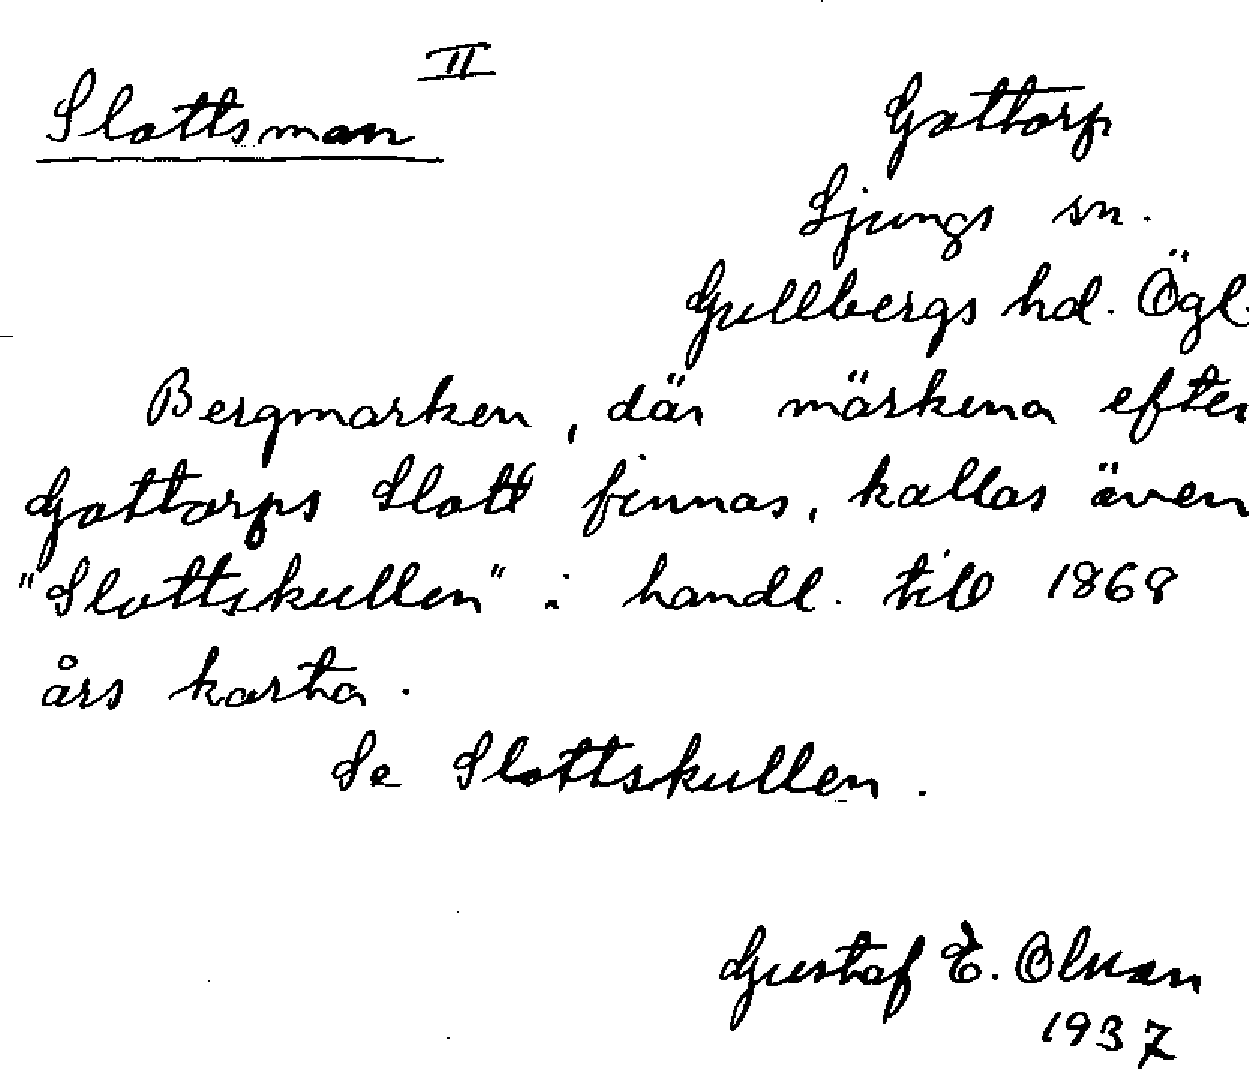 II
Slottsman
Gottorp
Ljungs sn.
Gullbergs hd. Ögl.
Bergmarken, där märkena efter
Gottorps Slott finnas, kallas även
"Slottskullen" i handl. till 1868
års karta.
Se Slottskullen.
Gustaf E. Olsson
1937